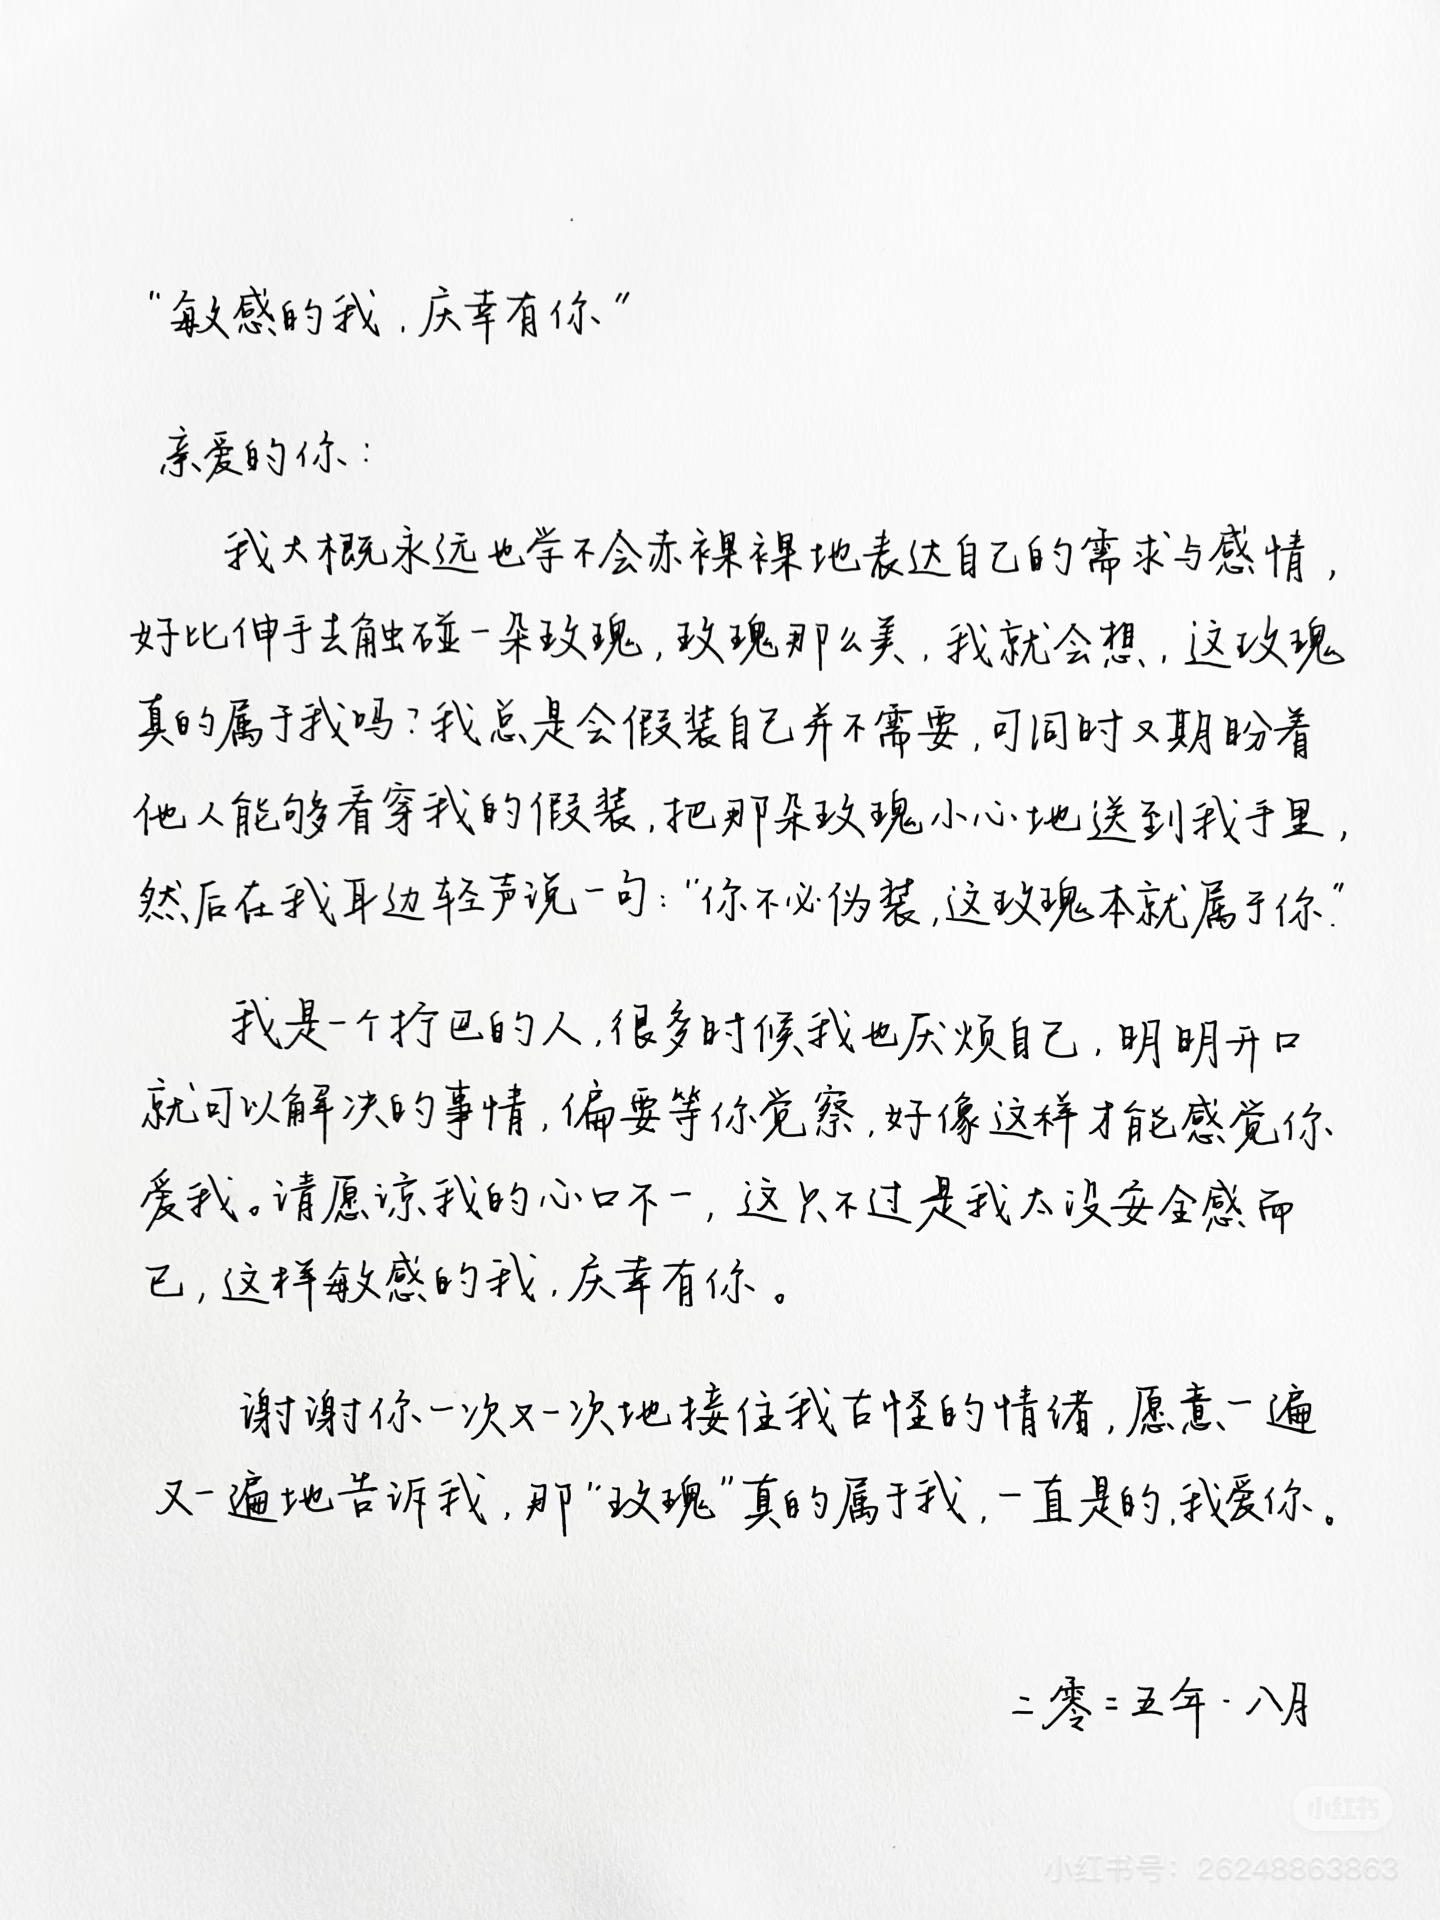 “敏感的我，庆幸有你”
亲爱的你：
我大概永远也学不会赤裸裸地表达自己的需求与感情，
好比伸手去触碰一朵玫瑰，玫瑰那么美，我就会想，这玫瑰
真的属于我吗？我总是会假装自己并不需要，可同时又期盼着
他人能够看穿我的假装，把那朵玫瑰小心地送到我手里，
然后在我耳边轻声说一句：“你不必伪装，这玫瑰本就属于你.”
我是一个拧巴的人，很多时候我也厌烦自己，明明开口
就可以解决的事情，偏要等你觉察，好像这样才能感觉你
爱我。请愿谅我的心口不一，这只不过是我太没安全感而
已，这样敏感的我，庆幸有你。
谢谢你一次又一次地接住我古怪的情绪，愿意一遍
又一遍地告诉我，那“玫瑰”真的属于我，一直是的，我爱你。
二零二五年·八月
小红书
小红书号：26248863863